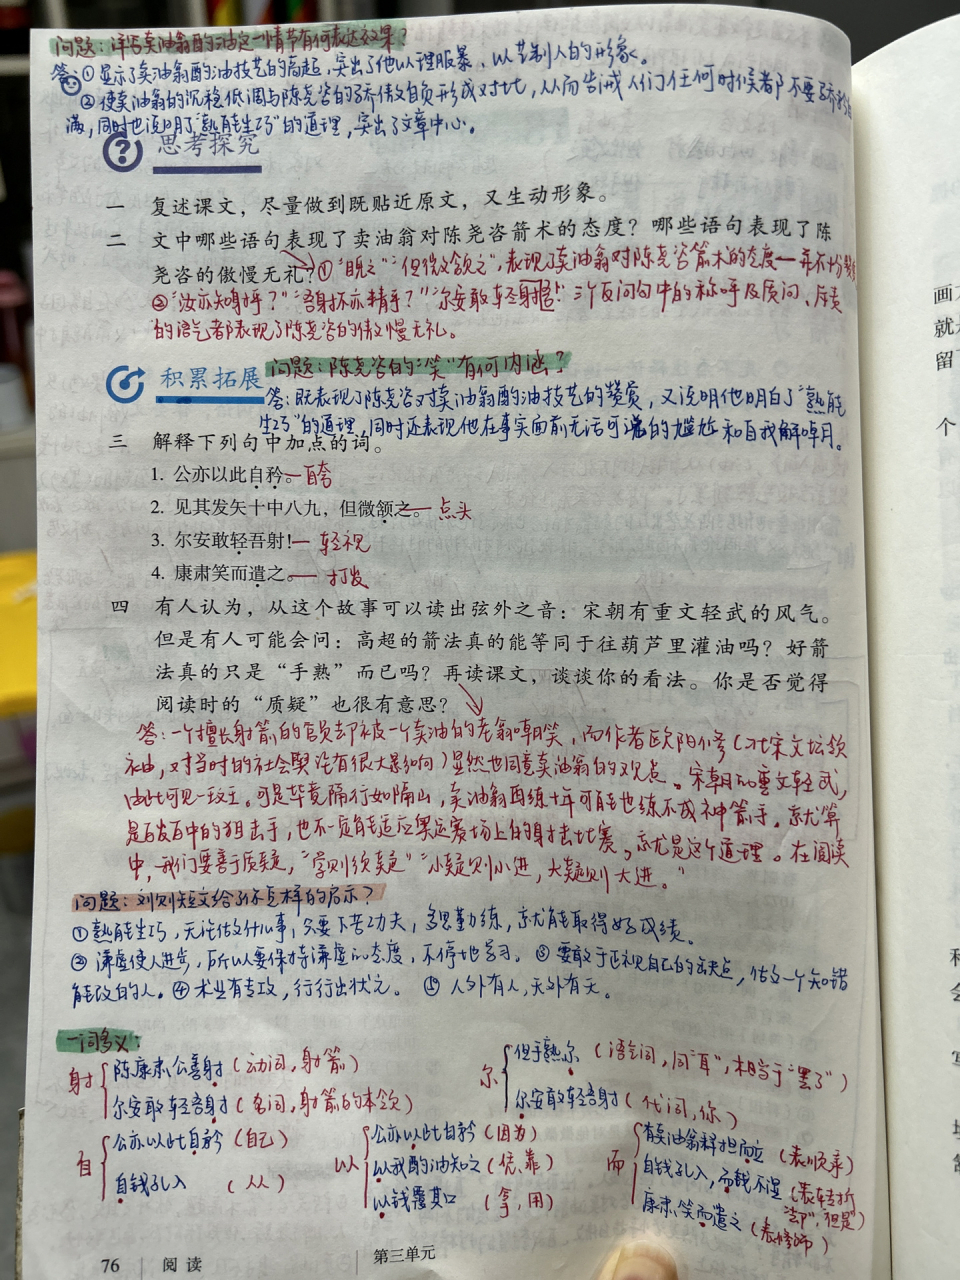 问题：详写卖油翁酌油这一情节有何表达效果？
答：①显示了卖油翁酌油技艺的高超，突出了他以理服暴，以艺制人的形象。
②使卖油翁的沉稳低调与陈尧咨的骄傲自负形成对比，从而告诫人们在任何时候都不要骄傲自
满，同时也说明了“熟能生巧”的道理，突出了文章中心。
思考探究
一 复述课文，尽量做到既贴近原文，又生动形象。
二 文中哪些语句表现了卖油翁对陈尧咨箭术的态度？哪些语句表现了陈
尧咨的傲慢无礼？①“睨之”“但微颔之”，表现了卖油翁对陈尧咨箭术的态度—并不十分赞赏
②“汝亦知射乎？”“吾射不亦精乎？”“尔安敢轻吾射！”三个反问句中的称呼及质问、斥责
的语气都表现了陈尧咨的傲慢无礼。
问题：陈尧咨的“笑”有何内涵？
积累拓展
答：既表现了陈尧咨对卖油翁酌油技艺的赞赏，又说明他明白了“熟能
生巧”的道理，同时还表现他在事实面前无话可说的尴尬和自我解嘲。
三 解释下列句中加点的词。
1. 公亦以此自矜。—自夸
2. 见其发矢十中八九，但微颔之。—点头
3. 尔安敢轻吾射！—轻视
4. 康肃笑而遣之。—打发
四 有人认为，从这个故事可以读出弦外之音：宋朝有重文轻武的风气。
但是有人可能会问：高超的箭法真的能等同于往葫芦里灌油吗？好箭
法真的只是“手熟”而已吗？再读课文，谈谈你的看法。你是否觉得
阅读时的“质疑”也很有意思？
答：一个擅长射箭的官员却被一个卖油的老翁嘲笑，而作者欧阳修（北宋文坛领
袖，对当时的社会舆论有很大影响）显然也同意卖油翁的观点。宋朝的重文轻武，
由此可见一斑。可是毕竟隔行如隔山，卖油翁再练十年可能也练不成神箭手。就算
是百发百中的狙击手，也不一定能适应奥运赛场上的射击比赛，就是这个道理。在阅读
中，我们要善于质疑，“学则须疑”“小疑则小进，大疑则大进。”
问题：刘则短文给我们怎样的启示？
①熟能生巧，无论做什么事，只要下苦功夫，多思勤练，就能取得好成绩。
②谦虚使人进步，所以要保持谦虚的态度，不停地学习。③要敢于正视自己的缺点，做一个知错
能改的人。④术业有专攻，行行出状元。⑤人外有人，天外有天。
一词多义：
射 陈康肃公善射（动词，射箭）
尔安敢轻吾射（名词，射箭的本领）
尔 但手熟尔（语气词，同“耳”，相当于“罢了”）
尔安敢轻吾射（代词，你）
自 公亦以此自矜（自己）
自钱孔入（从）
以 公亦以此自矜（因为）
以我酌油知之（凭、靠）
以钱覆其口（拿，用）
而 有卖油翁释担而立（表顺承）
自钱孔入，而钱不湿（表转折“却”，“但是”）
康肃笑而遣之（表修饰）
76 阅读 第三单元
画
就
留
个